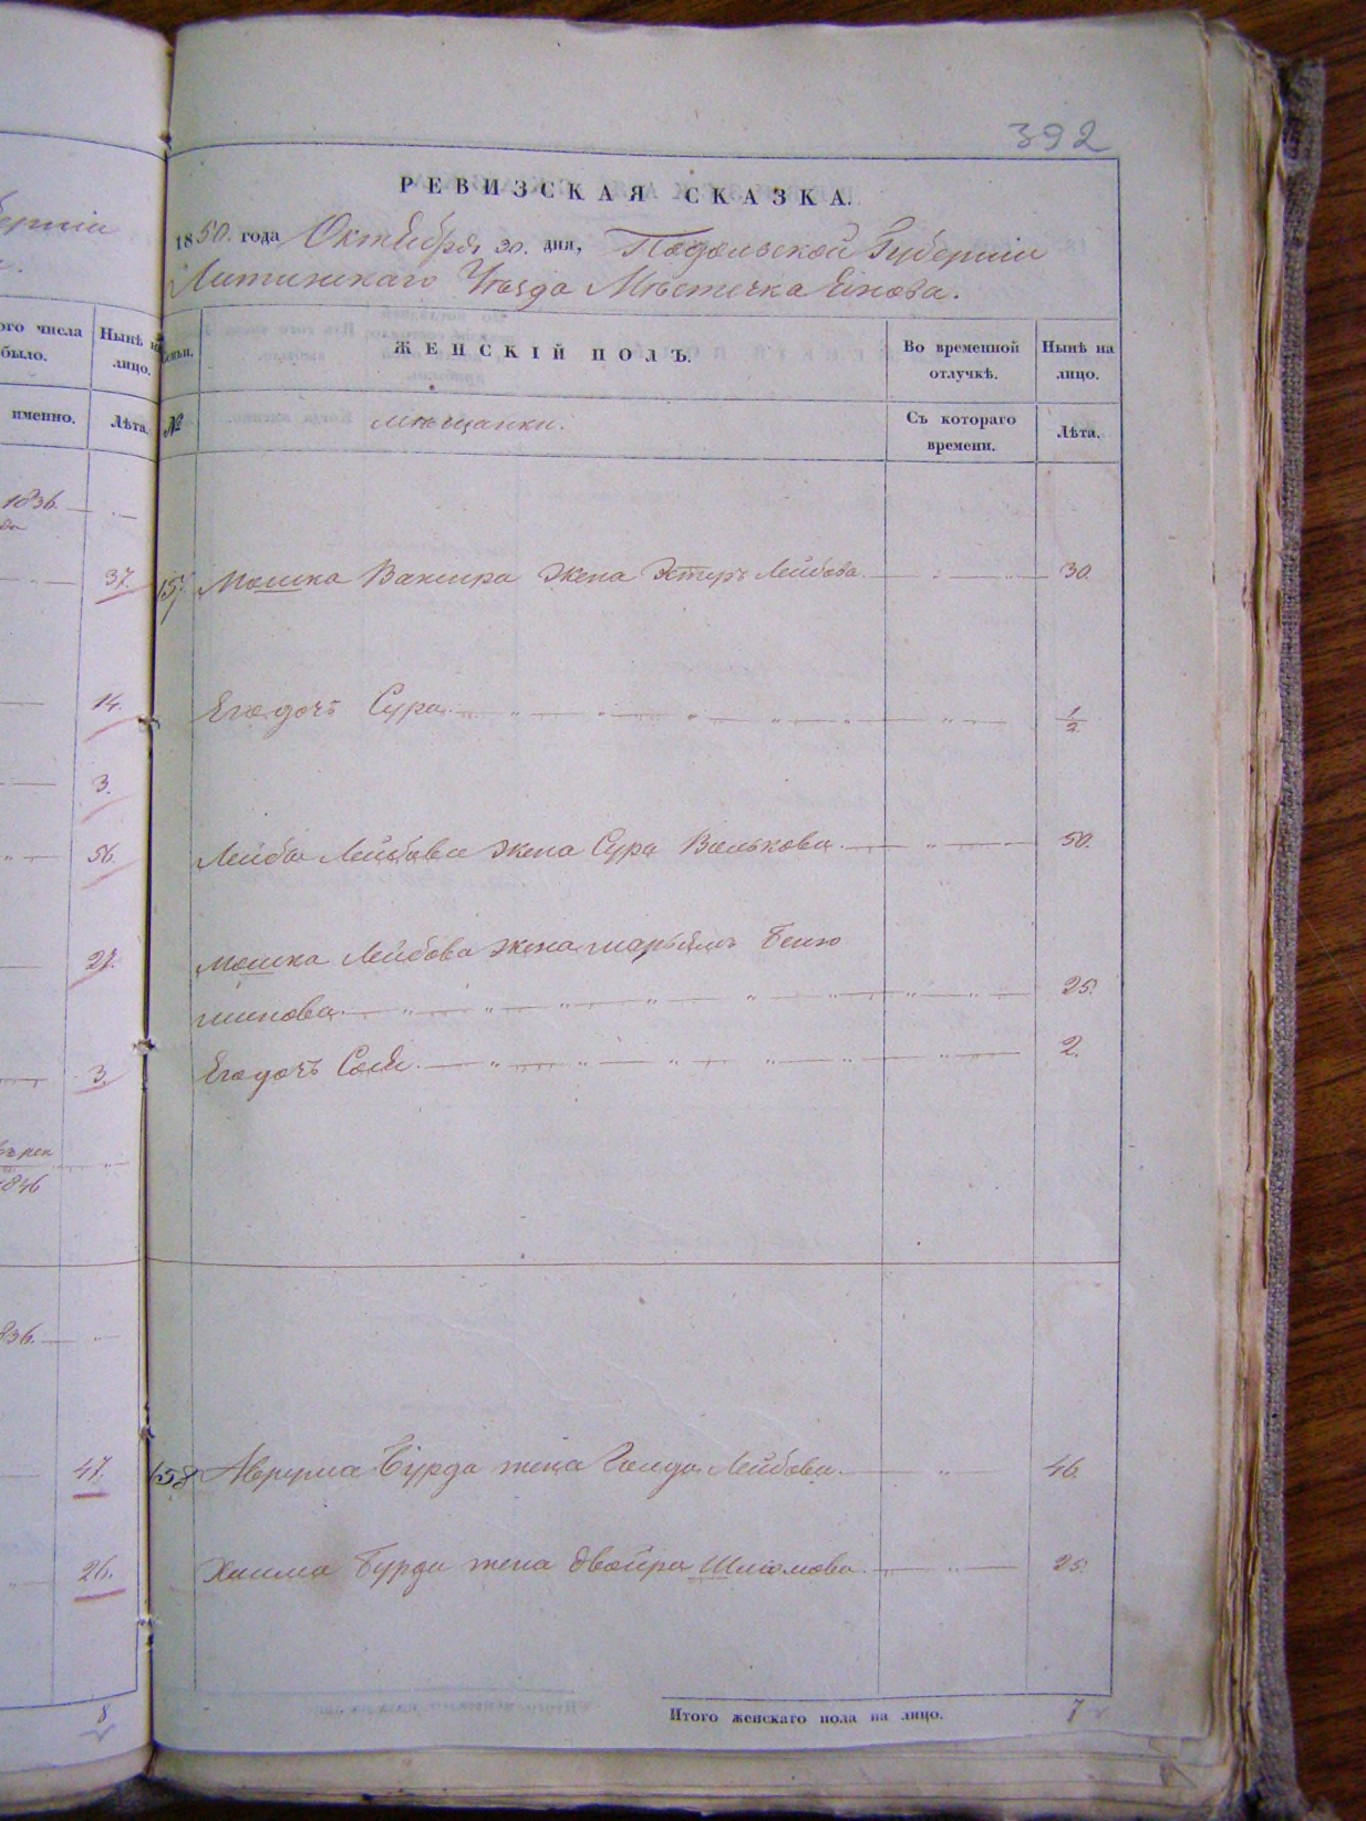 392
РЕВИЗСКАЯ СКАЗКА.
1850. года Октября 30. дня, Подольской Губерніи
Литинскаго Уѣзда Мѣстечка Янова.
ого числа
было.
Нынѣ на
лицо.
именно.
Лѣта.
семьи.
ЖЕНСКІЙ ПОЛЪ.
Во временной
отлучкѣ.
Нынѣ на
лицо.
№
Мѣщанки.
Съ котораго
времени.
Лѣта.
1836.
37.
157 Мошка Вакшра жена Эстеръ Лейбова 30.
14.
Его дочь Сура 1/2
3.
56.
Лейбы Лейбова жена Сура Волькова 50.
27.
Мошка Лейбова жена Марьямъ Беню
минова 25.
3.
Его дочь Сося 2.
1846
836.
47.
158 Аврума Бурда жена Голда Лейбова 46.
26.
Хаима Бурда жена Двойра Шлиомова 25.
8
Итого женскаго пола на лицо. 7